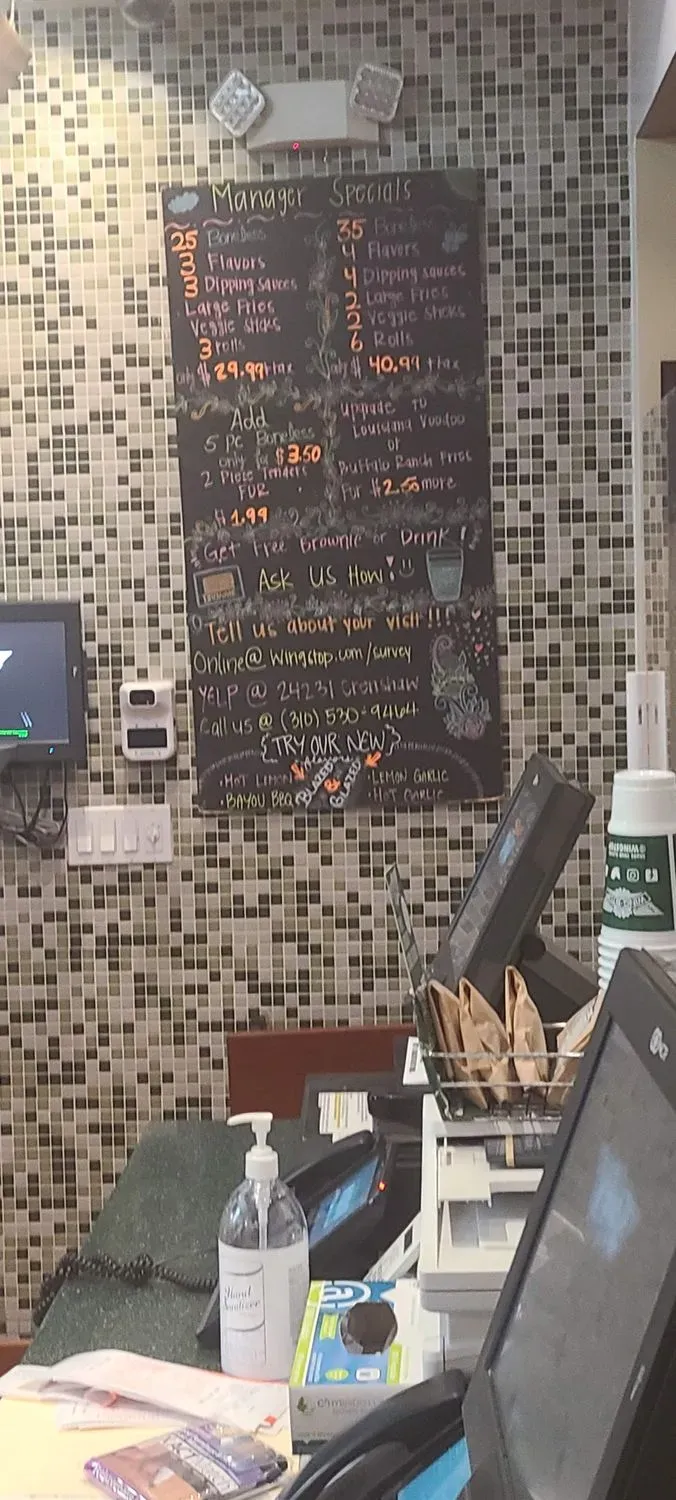 Manager Specials
25 Boneless
3 Flavors
3 Dipping sauces
Large Fries
Veggie sticks
3 rolls
only $ 29.99+tax
35 Boneless
4 Flavors
4 Dipping sauces
2 Large Fries
2 Veggie sticks
6 Rolls
only $ 40.99 +tax
Add
5 pc Boneless
only for $3.50
2 Piece Tenders
FOR
$ 1.99
Upgrade TO
Louisiana Voodoo
or
Buffalo Ranch Fries
For $2.50 more
Get Free Brownie or Drink!
Ask US How!
Tell us about your visit!!!
Online@ Wingstop.com/survey
YELP @ 24231 Crenshaw
Call us @ (310) 530-9464
{TRY OUR NEW}
•HOT LIMON
•BAYOU BBQ
BLAZED
&
GLAZED
•LEMON GARLIC
•HOT GARLIC
Hand
Sanitizer